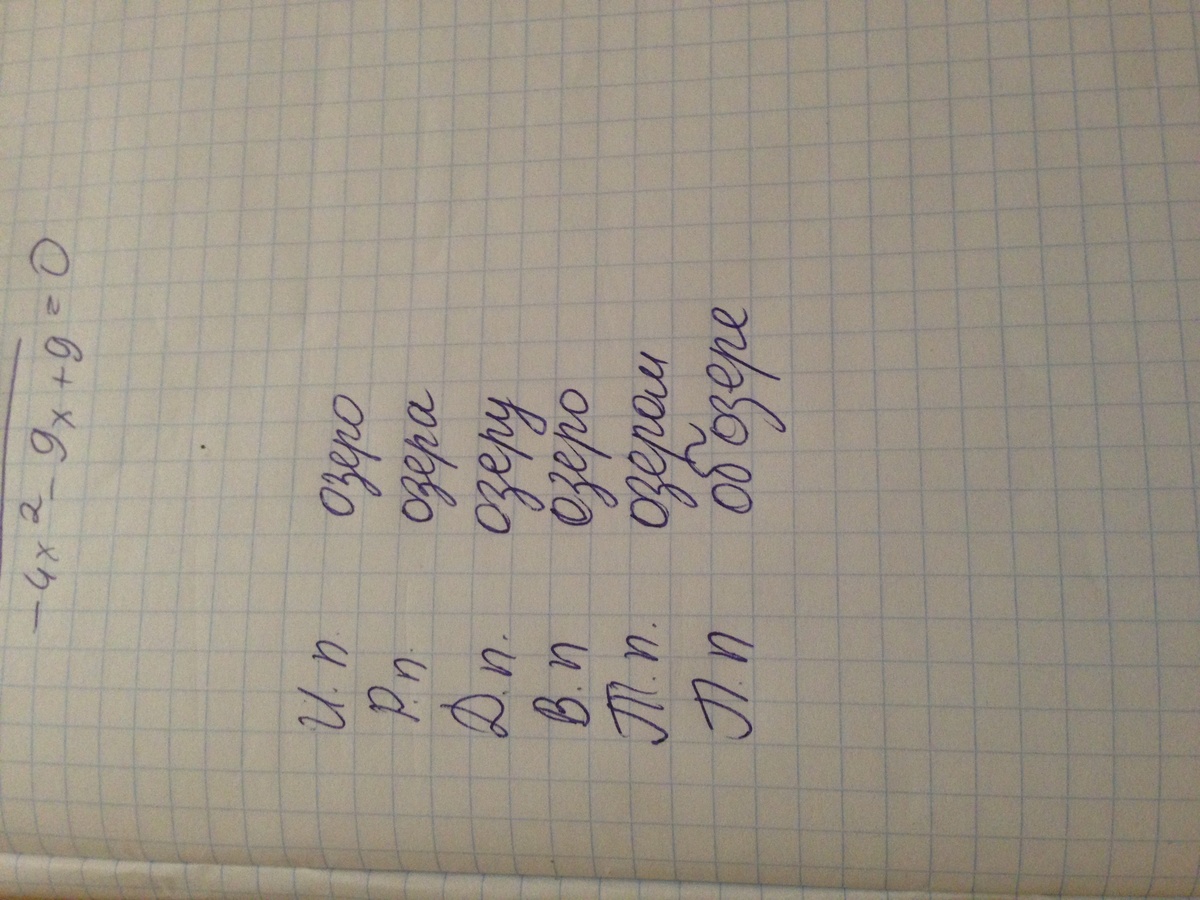 -4x² - 9x + 9 = 0
И.п. озеро
Р.п. озера
Д.п. озеру
В.п озеро
Т.п. озером
П.п об озере